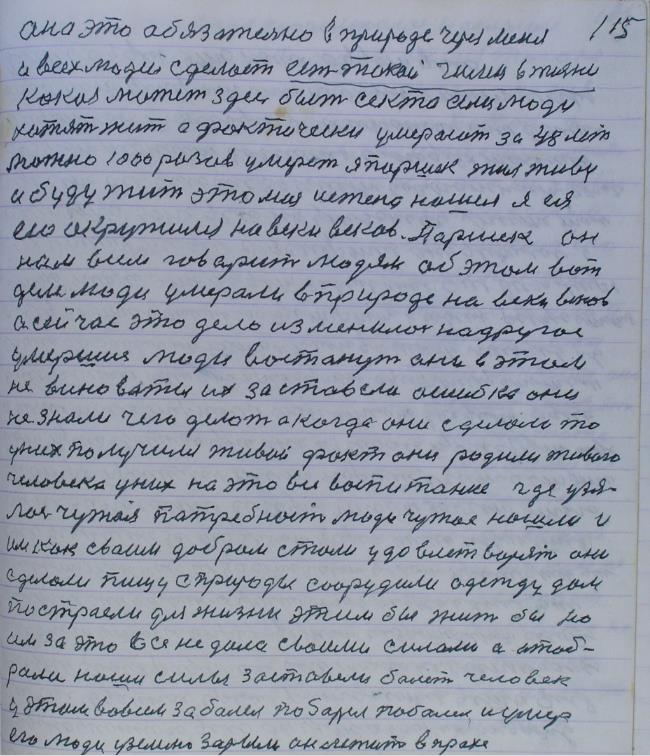 115
она это обязателно в природе через меня
и всех людей сделает есть такой член в жизни
какая может здес быт секта если люди
хотят жит а фактически умерают за 48 лет
можно 1000 разов умерет я паршек жил живу
и буду жит это моя истена нашел я ея
ею окружился на веки веков. Паршек он
нам всем говарит людям об этом вот
деле люди умерали в природе на веки веков
а сейчас это дело изменилос на другое
умершие люди востанут они в этом
не виноваты их заставела ошибка они
не знали чего делат а когда они сделали то
у них получился живой факт они родили живого
человека у них на это все воспитание где взя-
лас чужая патребност люди чужое нашли и
им как своим добром стали удовлетворят они
сделали пищу с природы соорудили одежду дом
построели для жизни этим бы жит бы но
им за это все не дала своими силами а отоб-
рали наши силы заставели болет человек
у этом вовсем заболел побарол поболел и умер
его люди у землю зарыли он лежит в прахе